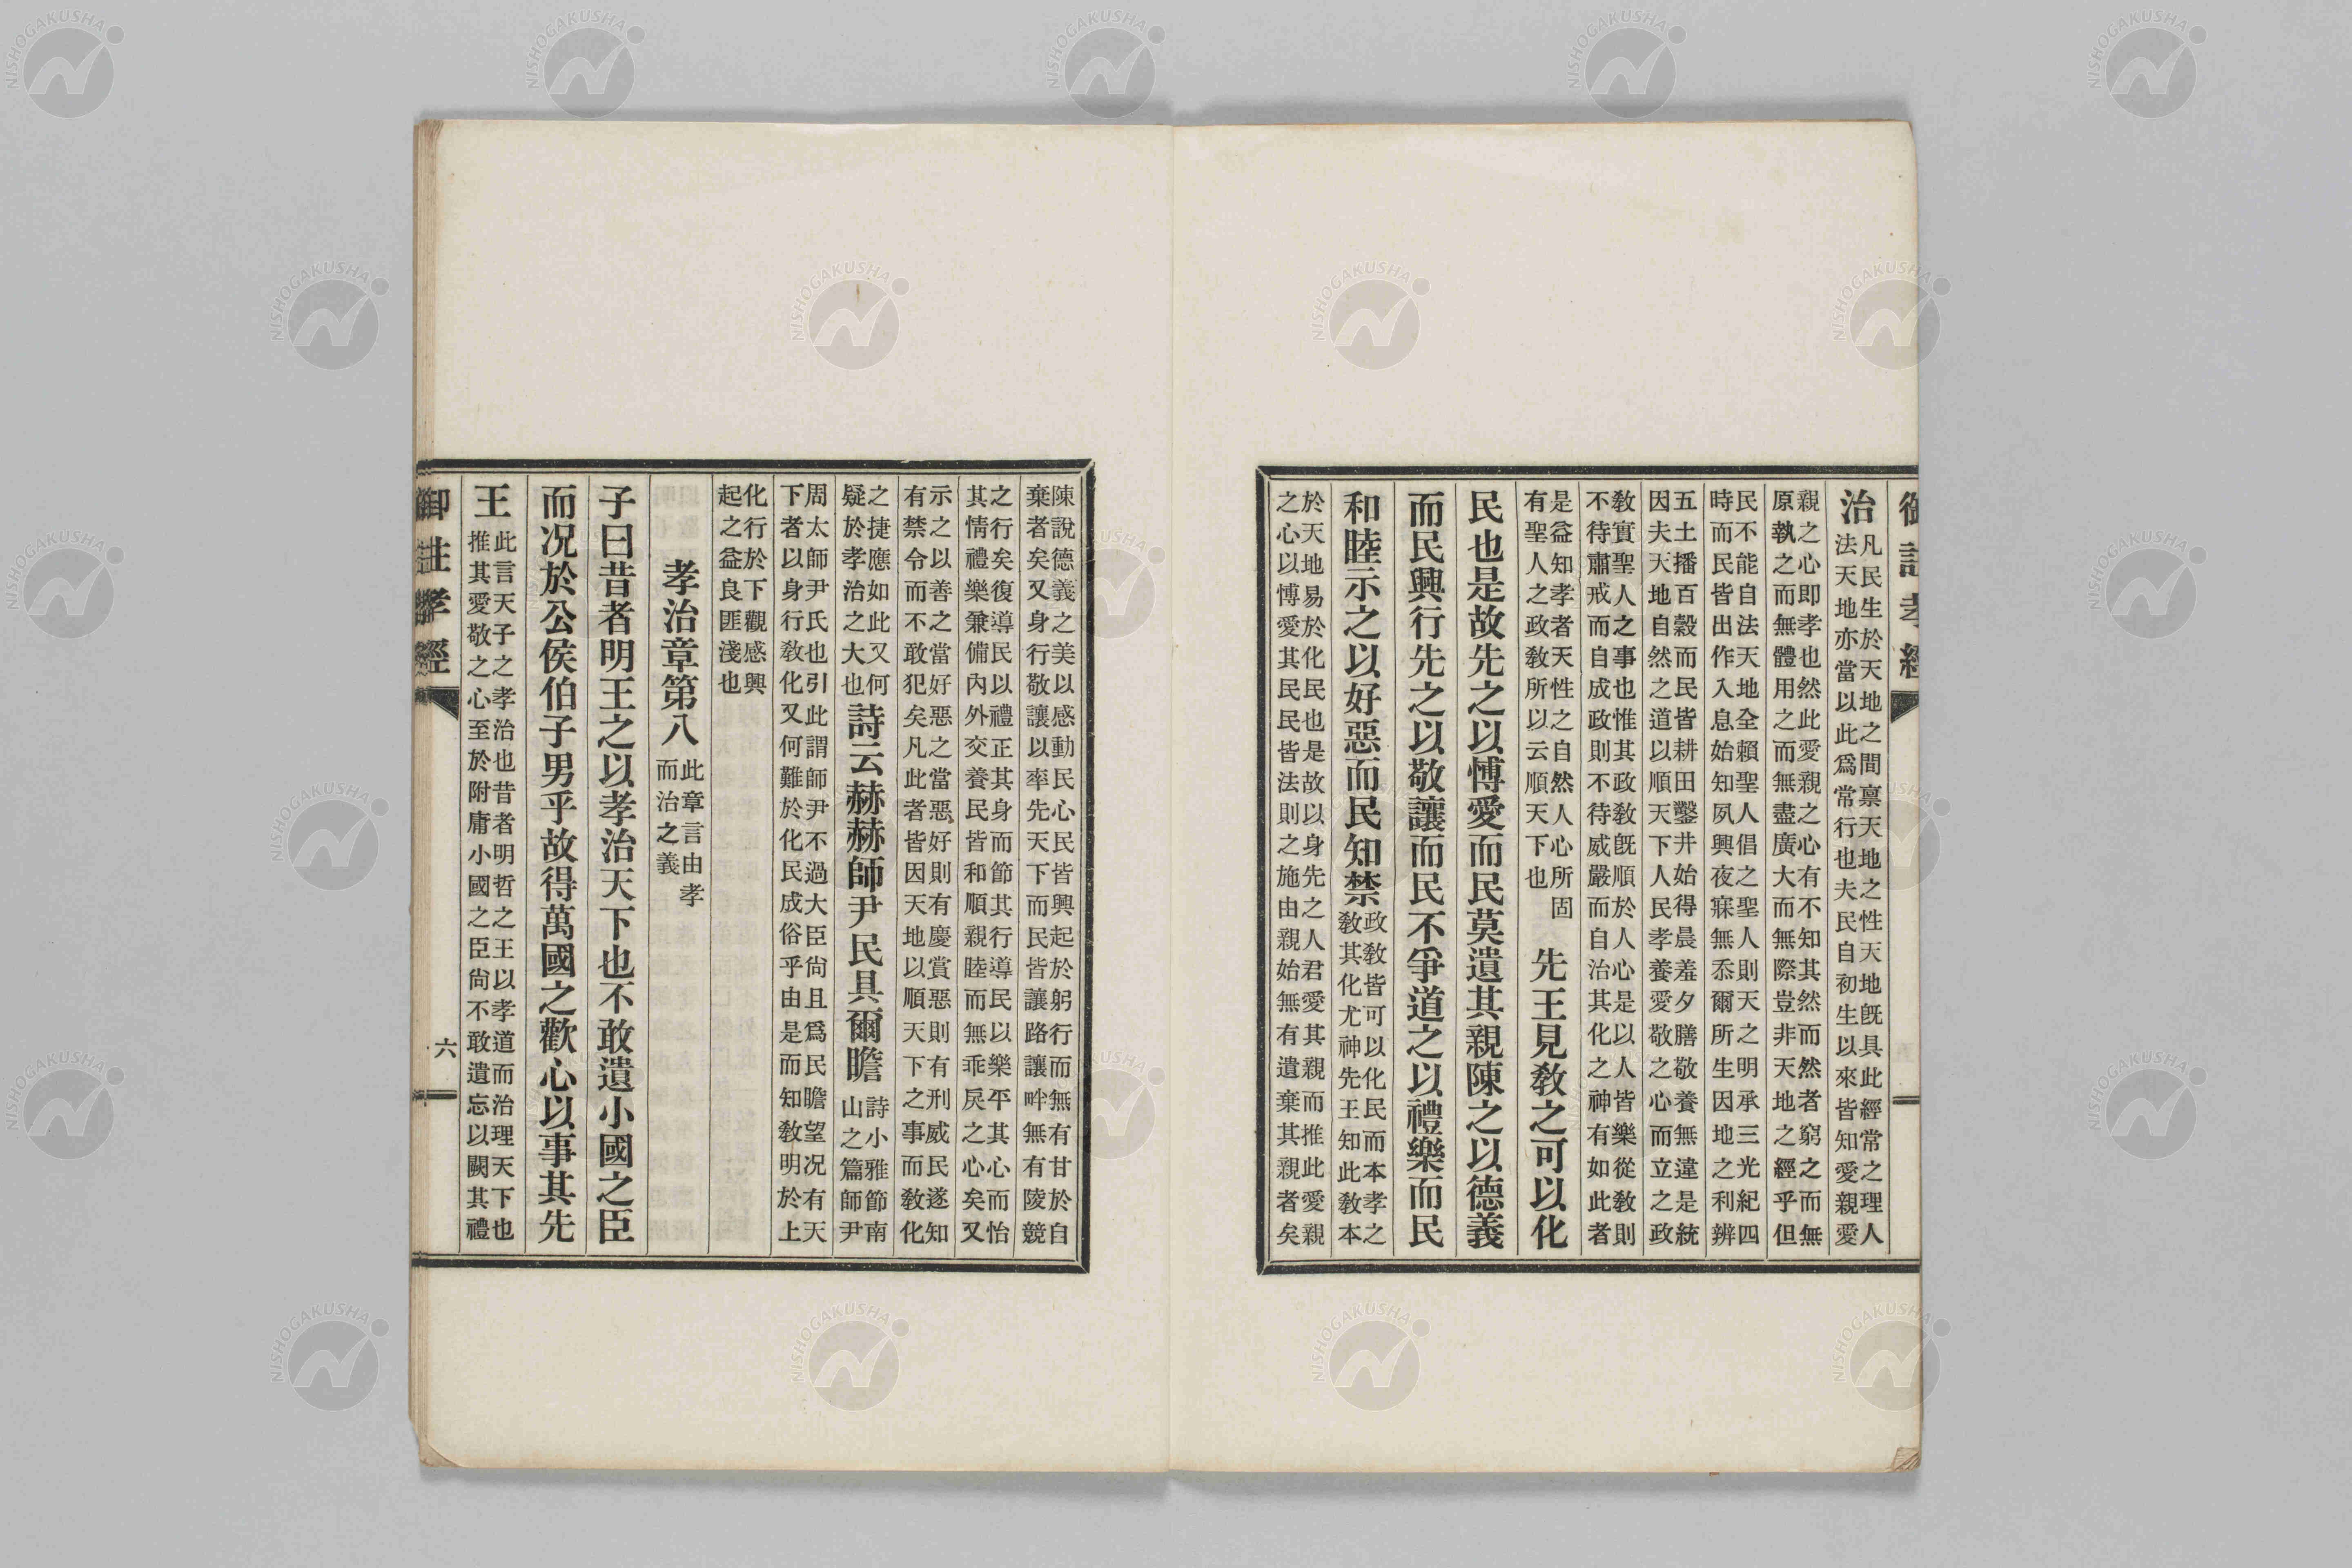 御註孝經
治
凡民生於天地之間禀天地之性天地既具此經常之理人
法天地亦當以此爲常行也夫民自初生以來皆知愛親愛
親之心即孝也然此愛親之心有不知其然而然者窮之而無
原執之而無體用之而無盡廣大而無際豈非天地之經乎但
民不能自法天地全賴聖人倡之聖人則天之明承三光紀四
時而民皆出作入息始知夙興夜寐無忝爾所生因地之利辨
五土播百穀而民皆耕田鑿井始得晨羞夕膳敬養無違是統
因夫天地自然之道以順天下人民孝養愛敬之心而立之政
敎實聖人之事也惟其政敎既順於人心是以人皆樂從敎則
不待肅戒而自成政則不待威嚴而自治其化之神有如此者
是益知孝者天性之自然人心所固
有聖人之政敎所以云順天下也
先王見敎之可以化
民也是故先之以博愛而民莫遺其親陳之以德義
而民興行先之以敬讓而民不爭道之以禮樂而民
和睦示之以好惡而民知禁
政敎皆可以化民而本孝之
敎其化尤神先王知此敎本
於天地易於化民也是故以身先之人君愛其親而推此愛親
之心以博愛其民民皆法則之施由親始無有遺棄其親者矣
陳說德義之美以感動民心民皆興起於躬行而無有甘於自
棄者矣又身行敬讓以率先天下而民皆讓路讓畔無有陵競
之行矣復導民以禮正其身而節其行導民以樂平其心而怡
其情禮樂兼備內外交養民皆和順親睦而無乖戾之心矣又
示之以善之當好惡之當惡好則有慶賞惡則有刑威民遂知
有禁令而不敢犯矣凡此者皆因天地以順天下之事而敎化
之捷應如此又何
疑於孝治之大也
詩云赫赫師尹民具爾瞻
詩小雅節南
山之篇師尹
周太師尹氏也引此謂師尹不過大臣尙且爲民瞻望况有天
下者以身行敎化又何難於化民成俗乎由是而知敎明於上
化行於下觀感興
起之益良匪淺也
孝治章第八
此章言由孝
而治之義
子曰昔者明王之以孝治天下也不敢遺小國之臣
而况於公侯伯子男乎故得萬國之歡心以事其先
王
此言天子之孝治也昔者明哲之王以孝道而治理天下也
推其愛敬之心至於附庸小國之臣尙不敢遺忘以闕其禮
御註孝經
六